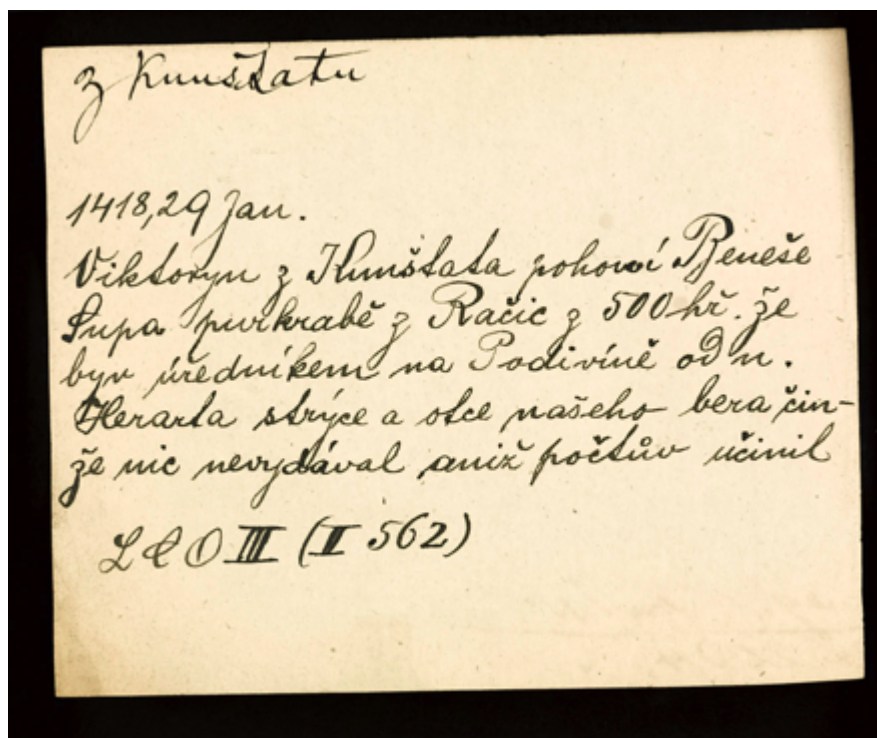 z Kunštatu
1418, 29 Jan.
Viktoryn z Kunštata pohoní Beneše
Supa purkrabě z Račic z 500 hř. že
byv úředníkem na Podivíně od n.
Herarta strýce a otce našeho bera čin-
že nic nevydával aniž počtův učinil
L C O III (II 562)